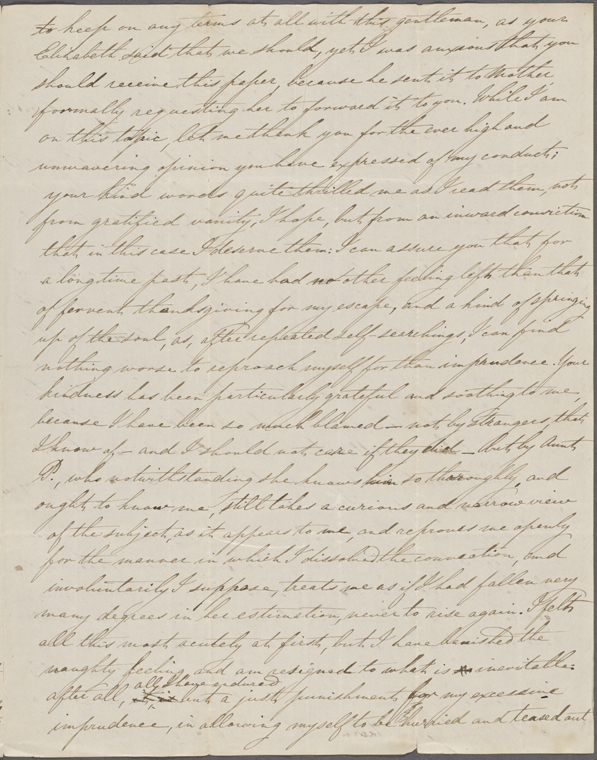 to keep on any terms at all with this gentleman, as your
Elizabeth said that we should, yet I was anxious that you
should receive this paper because he sent it to Mother
formally requesting her to forward it to you. While I am
on this topic, let me thank you for the ever high and
unwavering opinion you have expressed of my conduct;
your kind words quite thrilled me as I read them, not
from gratified vanity, I hope, but from an inward conviction
that in this case I deserve them: I can assure you that for
a long time past, I have had no other feeling left than that
of fervent thanksgiving for my escape, and a kind of springing
up of the soul, as, after repeated self-searchings, I can find
nothing worse to reproach myself for than imprudence. Your
kindness has been particularly grateful and soothing to me,
because I have been so much blamed — not by strangers, that
I know of — and I should not care if they did — but by Aunt
P., who notwithstanding she knows him so thoroughly, and
ought to know me, still takes a curious and narrow view
of the subject, as it appears to me, and reproves me openly
for the manner in which I dissolved the connection, and
involuntarily I suppose, treats me as if I had fallen very
many degrees in her estimation, never to rise again. I felt
all this most acutely at first, but I have banished the
naughty feeling and am resigned to what is inevitable:
after all, all I have endured but a just punishment, for my excessive
imprudence, in allowing myself to be hurried and teased out